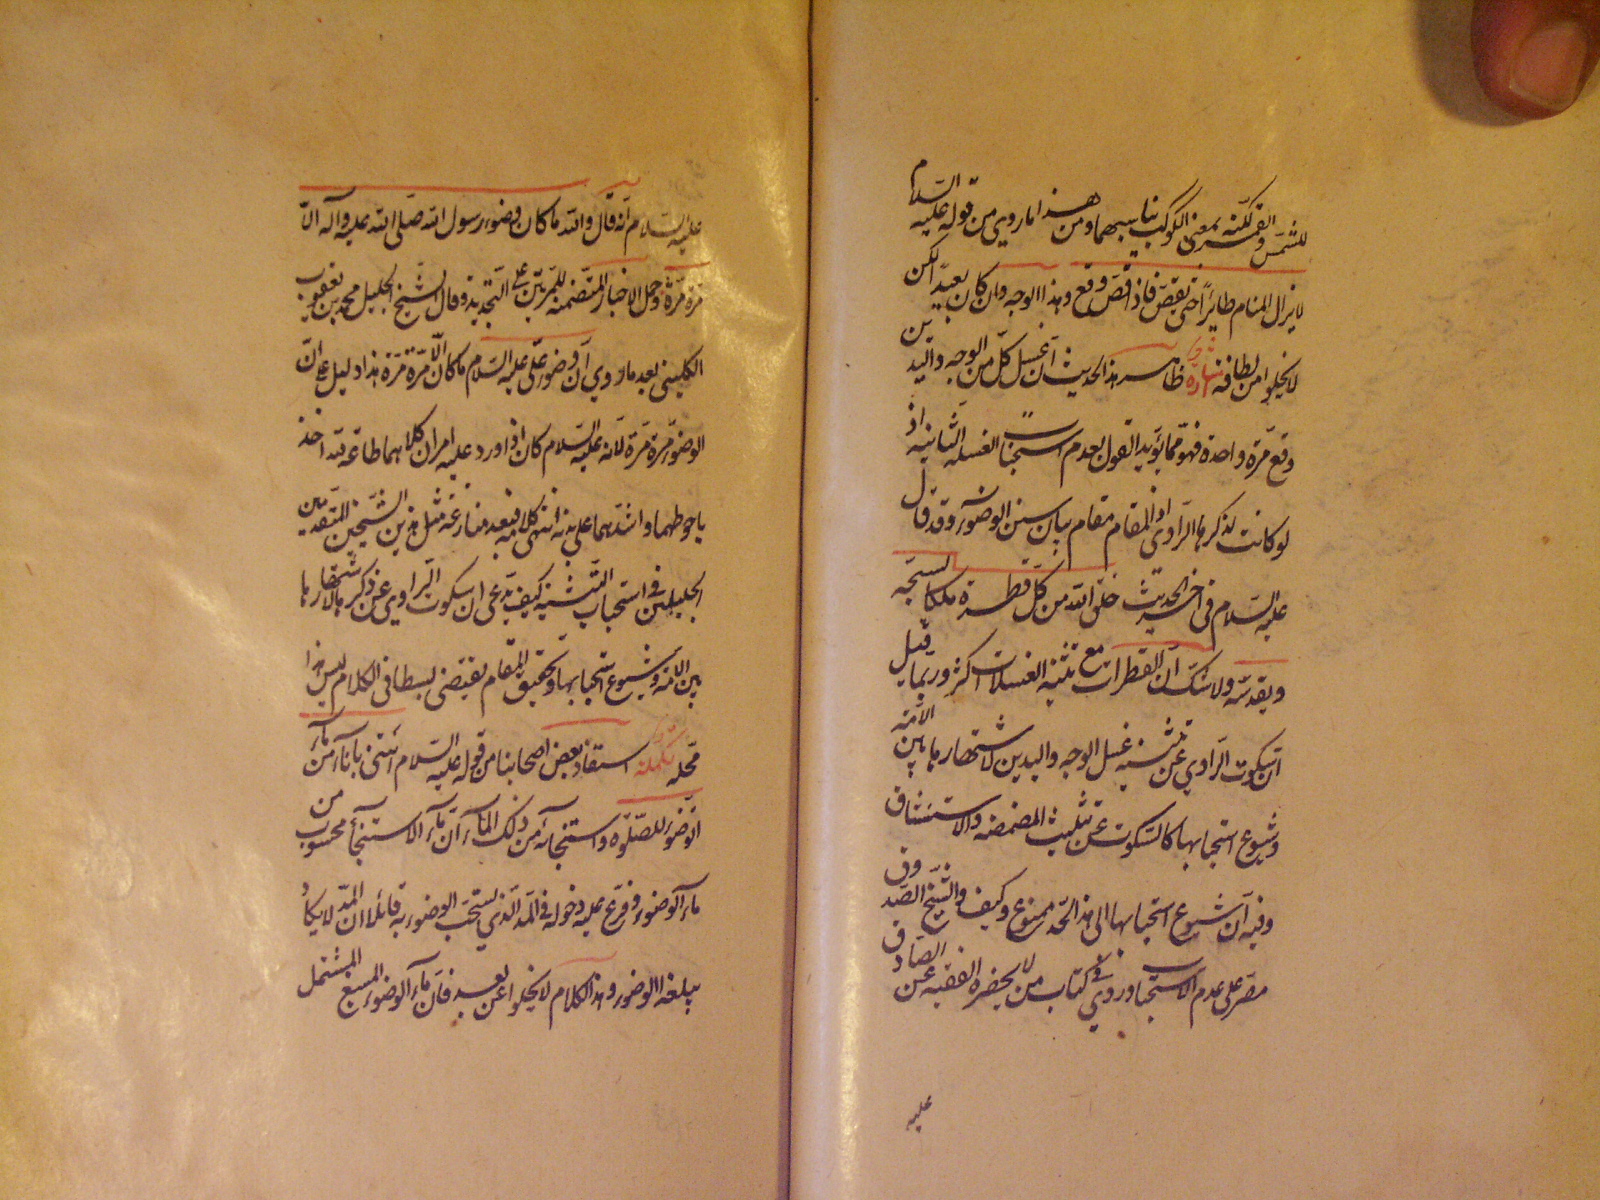 للشمس والقمر لكنه بمعنى الكوكب يناسبهما ومن هذا ما روي من قوله عليه السلام
لا يزال المنام طايرا حتى يقص فاذا قص وقع وهذا الوجه وان كان بعيدا لكن
لا يخلوا من لطافة اشارة ظاهر هذا الحديث ان غسل كل من الوجه واليدين
وقع مرة واحدة فهو مما يؤيد القول بعدم استحباب الغسلة الثانية اذ
لو كانت لذكرها الراوي اذ المقام مقام بيان سنن الوضوء وقد قال
عليه السلام في اخر الحديث خلق الله من كل قطرة ملكا يسبحه
ويقدسه ولا شك ان القطرات مع تثنية الغسلات اكثر وربما يقال
ان سكوت الراوي عن تثنية غسل الوجه واليدين لاشتهارها بين الامة
وشيوع استحبابها كالسكوت عن تثليث المضمضة والاستنشاق
وفيه ان شيوع استحبابها الى هذا الحد ممنوع وكيف والشيخ الصدوق
مصر على عدم الاستحباب وروي في كتاب من لا يحضره الفقيه عن الصادق
عليه
عليه السلام انه قال والله ما كان وضوء رسول الله صلى الله عليه وآله الا
مرة مرة وحمل الاخبار المتضمنة للمرتين على التجديد وقال الشيخ الجليل محمد بن يعقوب
الكليني بعد ما روي ان وضوء علي عليه السلام ما كان الا مرة مرة هذا دليل على ان
الوضوء مرة مرة لانه عليه السلام كان اذا ورد عليه امران كلاهما طاعة لله اخذ
باحوطهما واشدهما على بدنه انتهى كلامه فبعد منازعة مثل هذين الشيخين المتقدمين
الجليلين في استحباب التثنية كيف يدعى ان سكوت الراوي عن ذكرها لاشتهارها
بين الامة وشيوع استحبابها وتحقيق المقام يقتضي بسطا في الكلام ليس هذا
محله تكملة استفاد بعض اصحابنا من قوله عليه السلام ائتني باناء من ماء
اتوضوء للصلوة واستنجائه من ذلك الماء ان ماء الاستنجاء محسوب من
ماء الوضوء وفرع عليه دخوله في المد الذي يستحب الوضوء به قائلا ان المد لا يكاد
يبلغه الوضوء وهذا الكلام لا يخلوا عن بعد فان ماء الوضوء المسبغ المشتمل